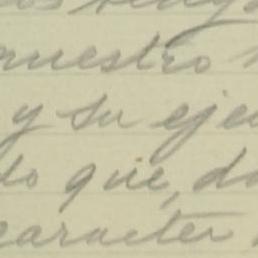 nuestro
y su eje
do que, do
caracter